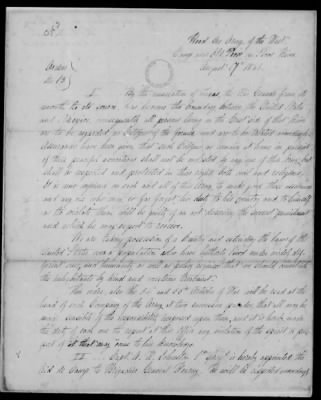 Head Qrs Army of the West
Camp near Old
August 7th 1846
Orders
No 13
I By the annexation of Texas, to this Country from its
mouth, to its source, has become the boundary between the United States
and Mexico, consequently all persons living on the East side of that River
are to be regarded as Citizens of the former and are to be treated accordingly.
Assurances have been given that such Citizens as remain at home in pursuit
of their peaceful avocations shall not be molested by any one of this Army, but
shall be respected and protected in their rights both civil and religious.
It is now again on each and all of this Army to make good these assurances
and any one who may so far forget his duty to his country and to himself
as to violate them will be guilty of an act deserving the severest punishment
and which he may expect to receive.
We are taking possession of a Country and extending the laws of the
United States over a population who have hitherto lived under widely dif
ferent ones, and humanity as well as policy requires that we should conciliate
the inhabitants by kind and courteous treatment.
This order, also the 54 and 55th Articles of War will be read at the
head of each Company of the Army at two successive parades, that all may be
made sensible of the responsibility imposed upon them, and it is hereby made
the duty of each one to report at this office any violation of the spirit or pur
port of it that may come to his knowledge.
II Capt. A. R. Johnston 1st Drags. is hereby appointed the
Aid de Camp to Brigadier General Kearny. He will be respected accordingly